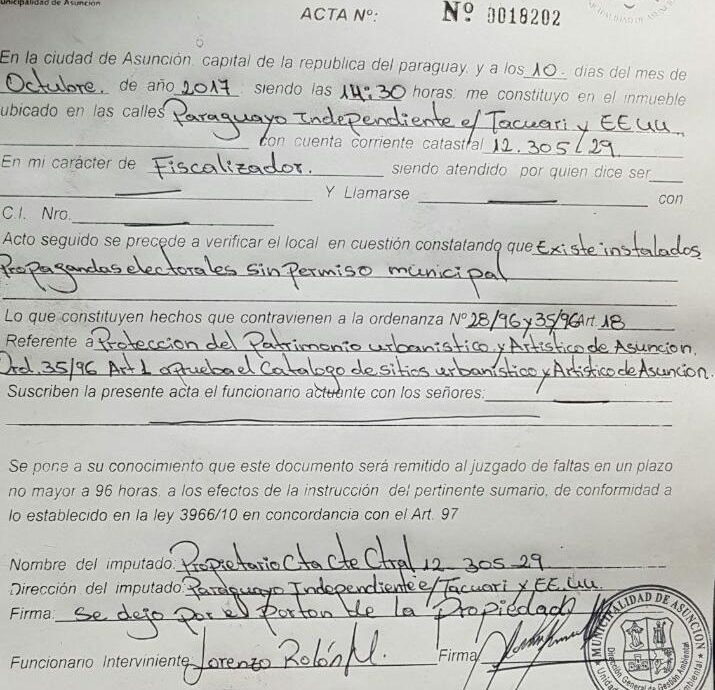 unicipalidad de Asunción
ACTA Nº: Nº 0018202
En la ciudad de Asunción, capital de la republica del paraguay, y a los 10. días del mes de
Octubre. de año 2017 siendo las 14:30 horas. me constituyo en el inmueble
ubicado en las calles Paraguayo Independiente e/ Tacuari y EE.UU.
con cuenta corriente catastral 12.305/29
En mi carácter de Fiscalizador. siendo atendido por quien dice ser
Y Llamarse con
C.I. Nro.
Acto seguido se precede a verificar el local en cuestión constatando que Existe instalados
Propagandas electorales sin permiso municipal
Lo que constituyen hechos que contravienen a la ordenanza Nº 28/96 y 35/96 Art. 18
Referente a Proteccion del Patrimonio urbanistico y Artistico de Asuncion.
Ord. 35/96 Art 1 aprueba el Catalogo de sitios urbanístico y Artistico de Asuncion.
Suscriben la presente acta el funcionario actuante con los señores:
Se pone a su conocimiento que este documento será remitido al juzgado de faltas en un plazo
no mayor a 96 horas. a los efectos de la instrucción del pertinente sumario, de conformidad a
lo establecido en la ley 3966/10 en concordancia con el Art. 97
Nombre del imputado: Propietario Cta Cte Ctral 12_305_29
Dirección del imputado: Paraguayo Independiente e/ Tacuari y EE.UU.
Firma: Se dejo por el Porton de la Propiedad
Funcionario Interviniente Lorenzo Rolón M. Firma
MUNICIPALIDAD DE ASUNCIÓN
Dirección General de Gestión Ambiental